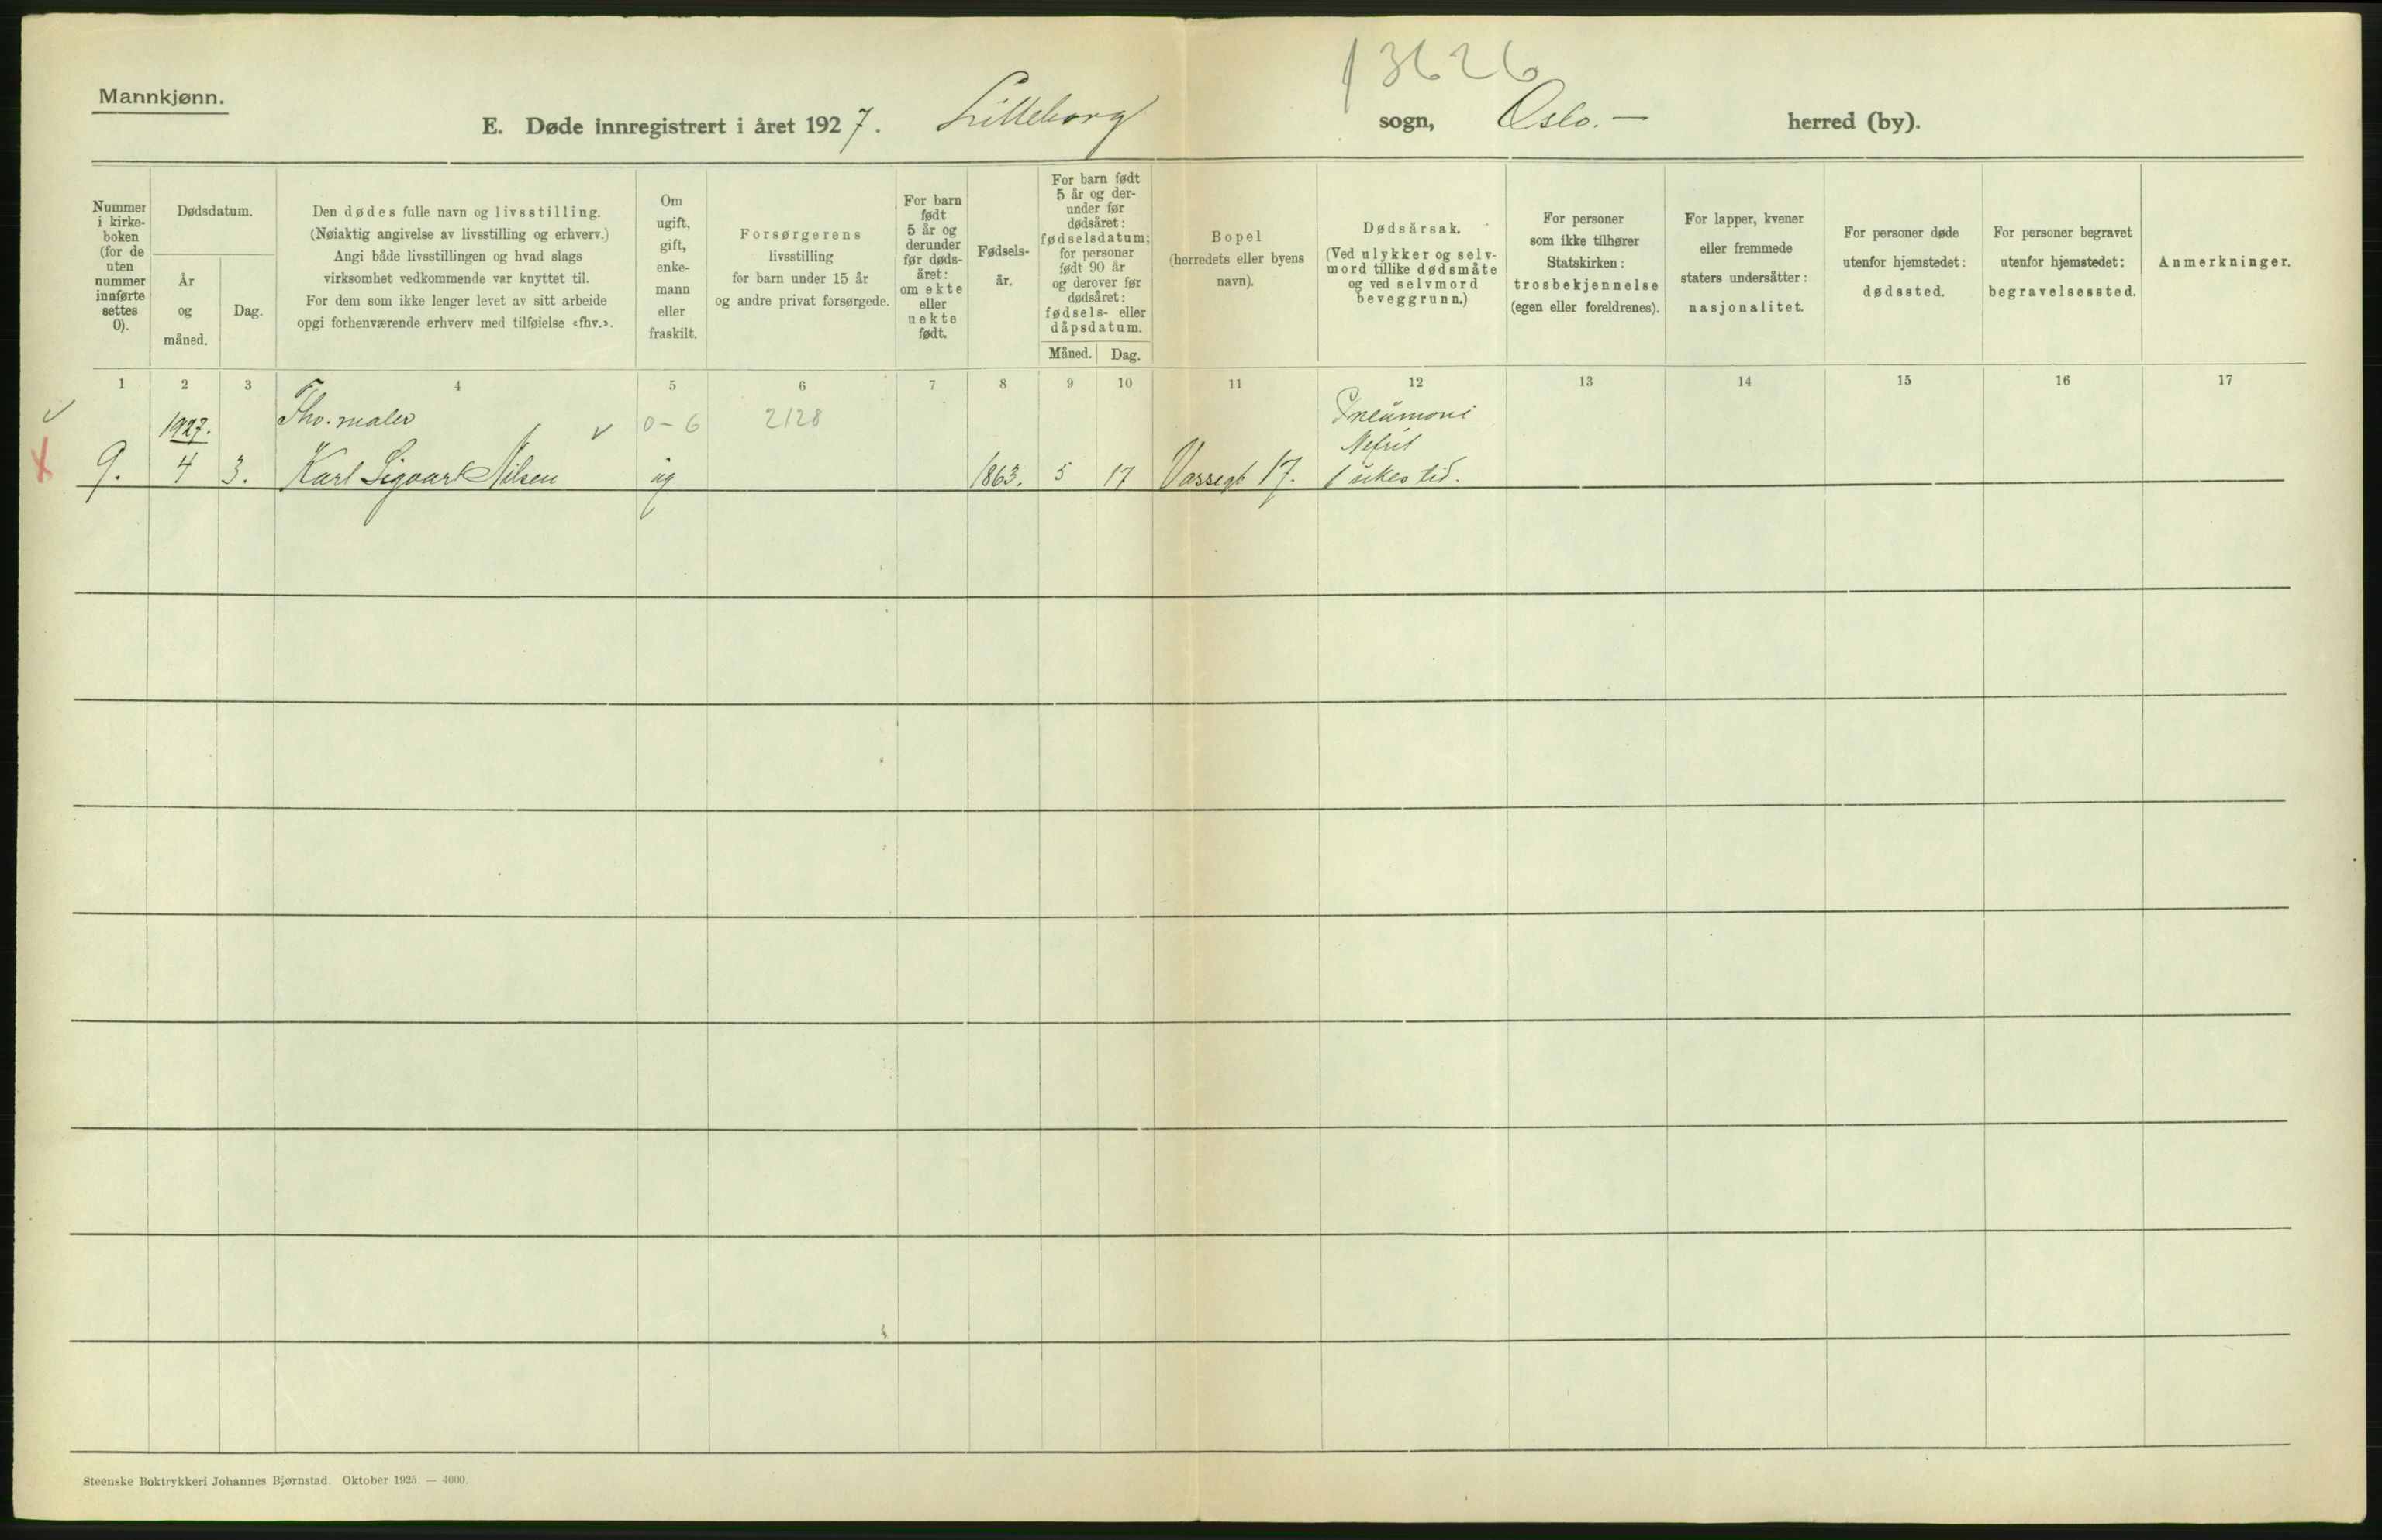 13626
Mannkjønn.
E. Døde innregistrert i året 1927. Lilleborg sogn, Oslo. — herred (by).
Nummer
i kirke-
boken
(for de
uten
nummer
innførte
settes
0).
Dødsdatum.
År
og
måned.
Dag.
Den dødes fulle navn og livsstilling.
(Nøiaktig angivelse av livsstilling og erhverv.)
Angi både livsstillingen og hvad slags
virksomhet vedkommende var knyttet til.
For dem som ikke lenger levet av sitt arbeide
opgi forhenværende erhverv med tilføielse «fhv.».
Om
ugift,
gift,
enke-
mann
eller
fraskilt.
Forsørgerens
livsstilling
for barn under 15 år
og andre privat forsørgede.
For barn
født
5 år og
derunder
før døds-
året:
om ekte
eller
uekte
født.
Fødsels-
år.
For barn født
5 år og der-
under før
dødsåret:
fødselsdatum;
for personer
født 90 år
og derover før
dødsåret:
fødsels- eller
dåpsdatum.
Måned.
Dag.
Bopel
(herredets eller byens
navn).
Dødsårsak.
(Ved ulykker og selv-
mord tillike dødsmåte
og ved selvmord
beveggrunn.)
For personer
som ikke tilhører
Statskirken:
trosbekjennelse
(egen eller foreldrenes).
For lapper, kvener
eller fremmede
staters undersåtter:
nasjonalitet.
For personer døde
utenfor hjemstedet:
dødssted.
For personer begravet
utenfor hjemstedet:
begravelsessted.
Anmerkninger.
1 2 3 4 5 6 7 8 9 10 11 12 13 14 15 16 17
1927. Fhv. maler 0-6 2128 Pneumoni
Nefrit
9. 4 3. Karl Sigvart Nilsen ug 1863. 5 17 Vossegt 17. 1 ukes tid.
Steenske Boktrykkeri Johannes Bjørnstad. Oktober 1925. — 4000.